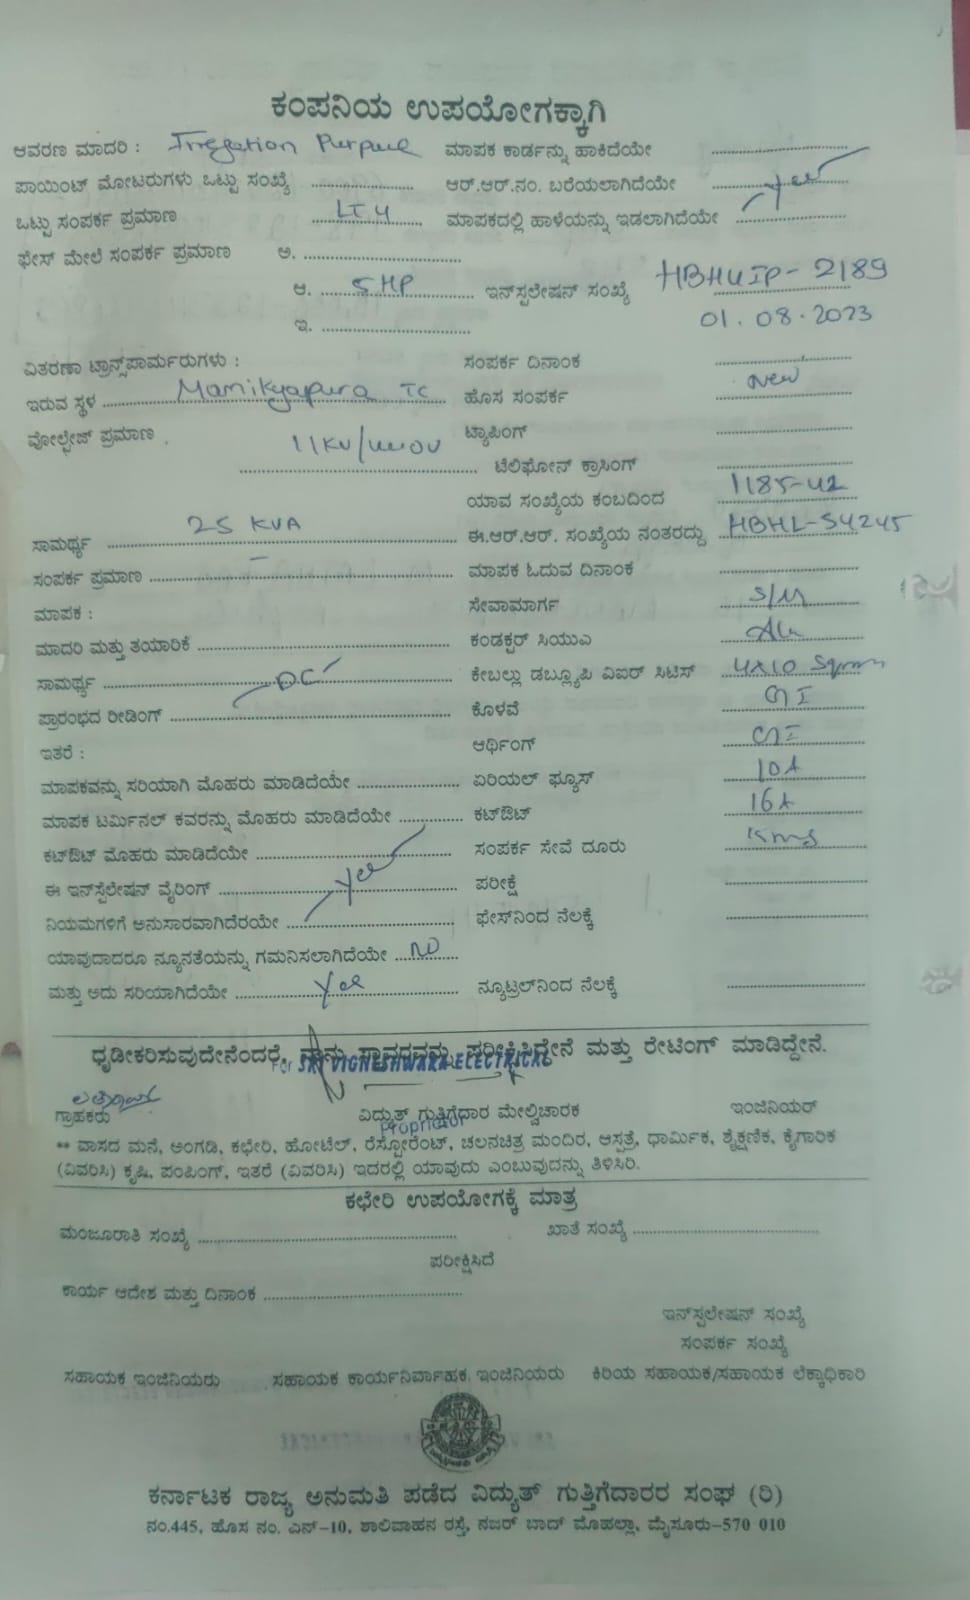 ಕಂಪನಿಯ ಉಪಯೋಗಕ್ಕಾಗಿ
ಆವರಣ ಮಾದರಿ : Irregation Purpuse ಮಾಪಕ ಕಾರ್ಡನ್ನು ಹಾಕಿದೆಯೇ
ಪಾಯಿಂಟ್ ಮೋಟರುಗಳು ಒಟ್ಟು ಸಂಖ್ಯೆ ಆರ್.ಆರ್.ನಂ. ಬರೆಯಲಾಗಿದೆಯೇ Yes
ಒಟ್ಟು ಸಂಪರ್ಕ ಪ್ರಮಾಣ LT4 ಮಾಪಕದಲ್ಲಿ ಹಾಳೆಯನ್ನು ಇಡಲಾಗಿದೆಯೇ
ಫೇಸ್ ಮೇಲೆ ಸಂಪರ್ಕ ಪ್ರಮಾಣ ಅ.
ಆ. 5HP ಇನ್‌ಸ್ಪಲೇಷನ್ ಸಂಖ್ಯೆ HBHUIP-2189
ಇ. 01.08.2023
ವಿತರಣಾ ಟ್ರಾನ್ಸ್‌ಪಾರ್ಮರುಗಳು : ಸಂಪರ್ಕ ದಿನಾಂಕ
ಇರುವ ಸ್ಥಳ Manikyapura TC ಹೊಸ ಸಂಪರ್ಕ New
ವೋಲ್ಟೇಜ್ ಪ್ರಮಾಣ 11KV/ ಟ್ಯಾಪಿಂಗ್
ಟೆಲಿಫೋನ್ ಕ್ರಾಸಿಂಗ್
ಯಾವ ಸಂಖ್ಯೆಯ ಕಂಬದಿಂದ 1185-42
ಸಾಮರ್ಥ್ಯ 25 KVA ಈ.ಆರ್.ಆರ್. ಸಂಖ್ಯೆಯ ನಂತರದ್ದು HBHL-54245
ಸಂಪರ್ಕ ಪ್ರಮಾಣ – ಮಾಪಕ ಓದುವ ದಿನಾಂಕ
ಮಾಪಕ : ಸೇವಾಮಾರ್ಗ S/M
ಮಾದರಿ ಮತ್ತು ತಯಾರಿಕೆ ಕಂಡಕ್ಟರ್ ಸಿಯುಎ Alu
ಸಾಮರ್ಥ್ಯ DC ಕೇಬಲ್ಲು ಡಬ್ಲ್ಯೂಪಿ ಎಐಆರ್ ಸಿಟಿಸ್ 4X10 Sqmm
ಪ್ರಾರಂಭದ ರೀಡಿಂಗ್ ಕೊಳವೆ GI
ಇತರೆ : ಆರ್ಥಿಂಗ್ GI
ಮಾಪಕವನ್ನು ಸರಿಯಾಗಿ ಮೊಹರು ಮಾಡಿದೆಯೇ ಏರಿಯಲ್ ಫ್ಯೂಸ್ 10A
ಮಾಪಕ ಟರ್ಮಿನಲ್ ಕವರನ್ನು ಮೊಹರು ಮಾಡಿದೆಯೇ ಕಟ್‌ಔಟ್ 16A
ಕಟ್‌ಔಟ್ ಮೊಹರು ಮಾಡಿದೆಯೇ ಸಂಪರ್ಕ ಸೇವೆ ದೂರು
ಈ ಇನ್‌ಸ್ಪೆಲೇಷನ್ ವೈರಿಂಗ್ Yes ಪರೀಕ್ಷೆ
ನಿಯಮಗಳಿಗೆ ಅನುಸಾರವಾಗಿದೆರಯೇ ಫೇಸ್‌ನಿಂದ ನೆಲಕ್ಕೆ
ಯಾವುದಾದರೂ ನ್ಯೂನತೆಯನ್ನು ಗಮನಿಸಲಾಗಿದೆಯೇ NO
ಮತ್ತು ಅದು ಸರಿಯಾಗಿದೆಯೇ Yes ನ್ಯೂಟ್ರಲ್‌ನಿಂದ ನೆಲಕ್ಕೆ
ಧೃಡೀಕರಿಸುವುದೇನೆಂದರೆ, ನಾನು ಸ್ಥಾವರವನ್ನು ಪರೀಕ್ಷಿಸಿದ್ದೇನೆ ಮತ್ತು ರೇಟಿಂಗ್ ಮಾಡಿದ್ದೇನೆ.
For SRI VIGNESHWARA ELECTRICAL
ಗ್ರಾಹಕರು ವಿದ್ಯುತ್ ಗುತ್ತಿಗೆದಾರ ಮೇಲ್ವಿಚಾರಕ ಇಂಜಿನಿಯರ್
Proprietor
** ವಾಸದ ಮನೆ, ಅಂಗಡಿ, ಕಛೇರಿ, ಹೋಟೆಲ್, ರೆಸ್ಟೋರೆಂಟ್, ಚಲನಚಿತ್ರ ಮಂದಿರ, ಆಸ್ಪತ್ರೆ, ಧಾರ್ಮಿಕ, ಶೈಕ್ಷಣಿಕ, ಕೈಗಾರಿಕ
(ವಿವರಿಸಿ) ಕೃಷಿ, ಪಂಪಿಂಗ್, ಇತರೆ (ವಿವರಿಸಿ) ಇದರಲ್ಲಿ ಯಾವುದು ಎಂಬುವುದನ್ನು ತಿಳಿಸಿರಿ.
ಕಛೇರಿ ಉಪಯೋಗಕ್ಕೆ ಮಾತ್ರ
ಮಂಜೂರಾತಿ ಸಂಖ್ಯೆ ಖಾತೆ ಸಂಖ್ಯೆ
ಪರೀಕ್ಷಿಸಿದೆ
ಕಾರ್ಯ ಆದೇಶ ಮತ್ತು ದಿನಾಂಕ
ಇನ್‌ಸ್ಪಲೇಷನ್ ಸಂಖ್ಯೆ
ಸಂಪರ್ಕ ಸಂಖ್ಯೆ
ಸಹಾಯಕ ಇಂಜಿನಿಯರು ಸಹಾಯಕ ಕಾರ್ಯನಿರ್ವಾಹಕ ಇಂಜಿನಿಯರು ಕಿರಿಯ ಸಹಾಯಕ/ಸಹಾಯಕ ಲೆಕ್ಕಾಧಿಕಾರಿ
ಕರ್ನಾಟಕ ರಾಜ್ಯ ಅನುಮತಿ ಪಡೆದ ವಿದ್ಯುತ್ ಗುತ್ತಿಗೆದಾರರ ಸಂಘ (ರಿ)
ನಂ.445, ಹೊಸ ನಂ. ಎನ್-10, ಶಾಲಿವಾಹನ ರಸ್ತೆ, ನಜರ್ ಬಾದ್ ಮೊಹಲ್ಲಾ, ಮೈಸೂರು-570 010